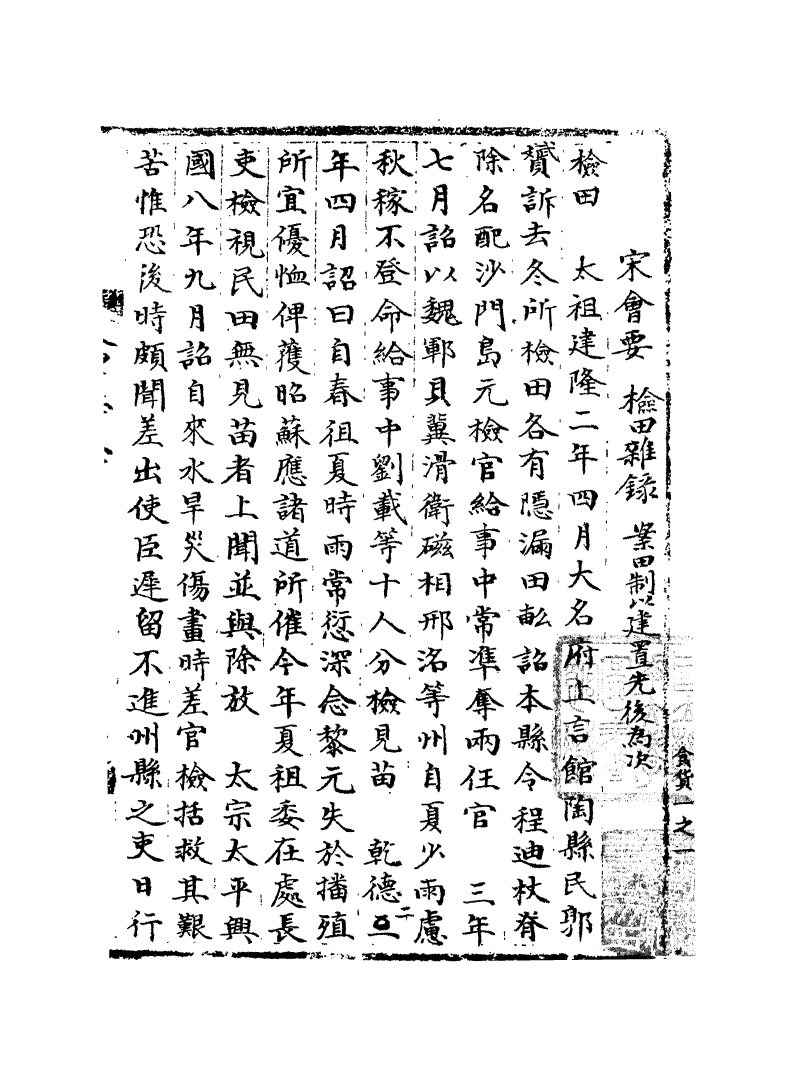 食貨一之一
宋會要　檢田雜錄　案田制以建置先後為次
檢田　太祖建隆二年四月大名府上言館陶縣民郭
贇訴去冬所檢田各有隱漏田畝詔本縣令程迪杖脊
除名配沙門島元檢官給事中常準奪兩任官　三年
七月詔以魏鄆貝冀滑衛磁相邢洺等州自夏少雨慮
秋稼不登命給事中劉載等十人分檢見苗　乾德二
年四月詔曰自春徂夏時雨常愆深念黎元失於播殖
所宜優恤俾蒦昭蘇應諸道所催今年夏租委在處長
吏檢視民田無見苗者上聞並與除放　太宗太平興
國八年九月詔自來水旱災傷畫時差官檢括救其艱
苦惟恐後時頗聞差出使臣遲留不進州縣之吏日行